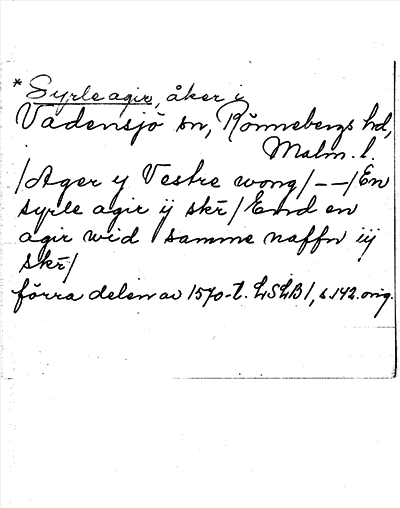 * Syrle agir, åker i
Vadensjö sn, Rönnebergs hd,
Malm. l.
/Ager y Vestre wong/ -- /En
syrle agir ij skr/ End en
agir wid samme naffn iij
skr/
förra delen av 1570-t. LSLB1, s 142. orig.